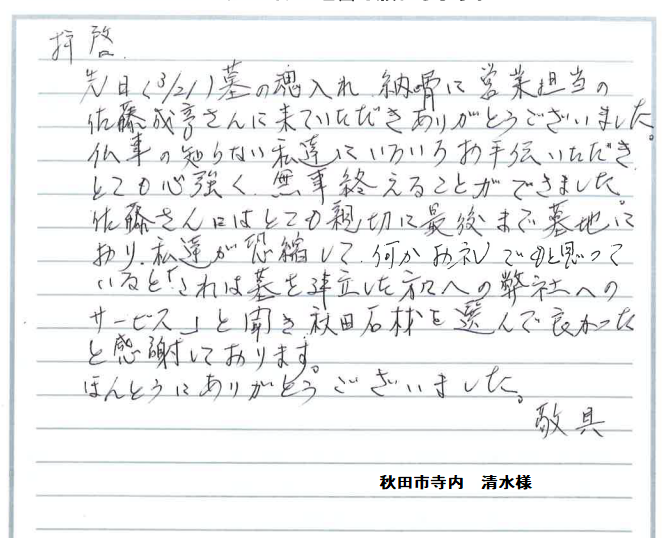 拝啓
先日(3/21)墓の魂入れ、納骨に営業担当の
佐藤成彦さんに来ていただきありがとうございました。
仏事の知らない私達にいろいろお手伝いただき
とても心強く、無事終えることができました。
佐藤さんにはとても親切に最後まで墓地に
おり、私達が恐縮して、何かお礼でもと思って
いると「これは墓を建立した方々への弊社への
サービス」と聞き秋田石材を選んで良かった
と感謝しております。
ほんとうにありがとうございました。
敬具
秋田市寺内 清水様